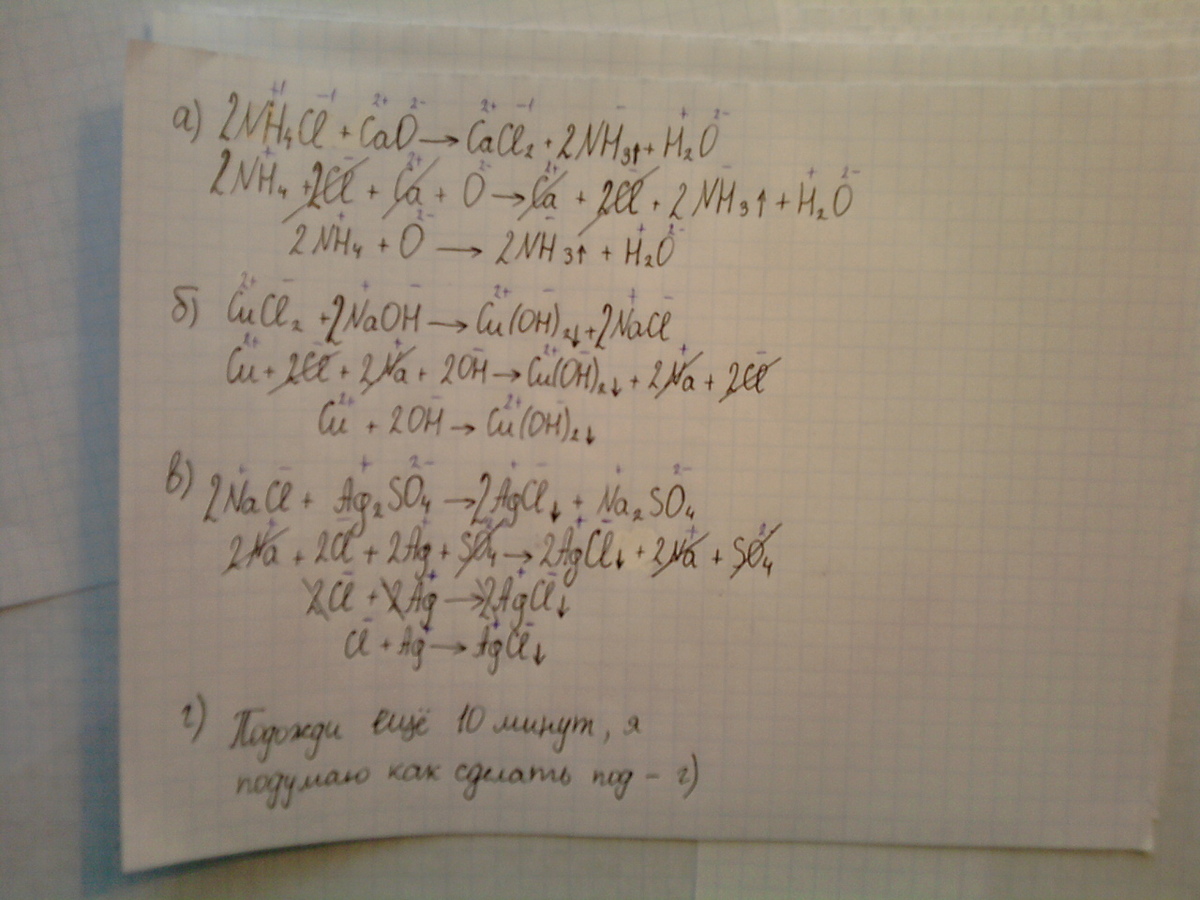 а) 2NH₄⁺¹Cl⁻¹ + Ca²⁺O²⁻ → Ca²⁺Cl₂⁻¹ + 2NH₃⁻↑ + H₂⁺O²⁻
2NH₄⁺ + 2Cl⁻ + Ca²⁺ + O²⁻ → Ca²⁺ + 2Cl⁻ + 2NH₃⁻↑ + H₂⁺O²⁻
2NH₄⁺ + O²⁻ → 2NH₃⁻↑ + H₂⁺O²⁻
б) Cu²⁺Cl₂⁻ + 2Na⁺OH⁻ → Cu²⁺(OH)₂⁻↓ + 2Na⁺Cl⁻
Cu²⁺ + 2Cl⁻ + 2Na⁺ + 2OH⁻ → Cu²⁺(OH)₂⁻↓ + 2Na⁺ + 2Cl⁻
Cu²⁺ + 2OH⁻ → Cu²⁺(OH)₂⁻↓
в) 2Na⁺Cl⁻ + Ag₂⁺SO₄²⁻ → 2Ag⁺Cl⁻↓ + Na₂⁺SO₄²⁻
2Na⁺ + 2Cl⁻ + 2Ag⁺ + SO₄²⁻ → 2Ag⁺Cl⁻↓ + 2Na⁺ + SO₄²⁻
2Cl⁻ + 2Ag⁺ → 2Ag⁺Cl⁻↓
Cl⁻ + Ag⁺ → Ag⁺Cl⁻↓
г) Подожди ещё 10 минут, я
подумаю как сделать под - г)